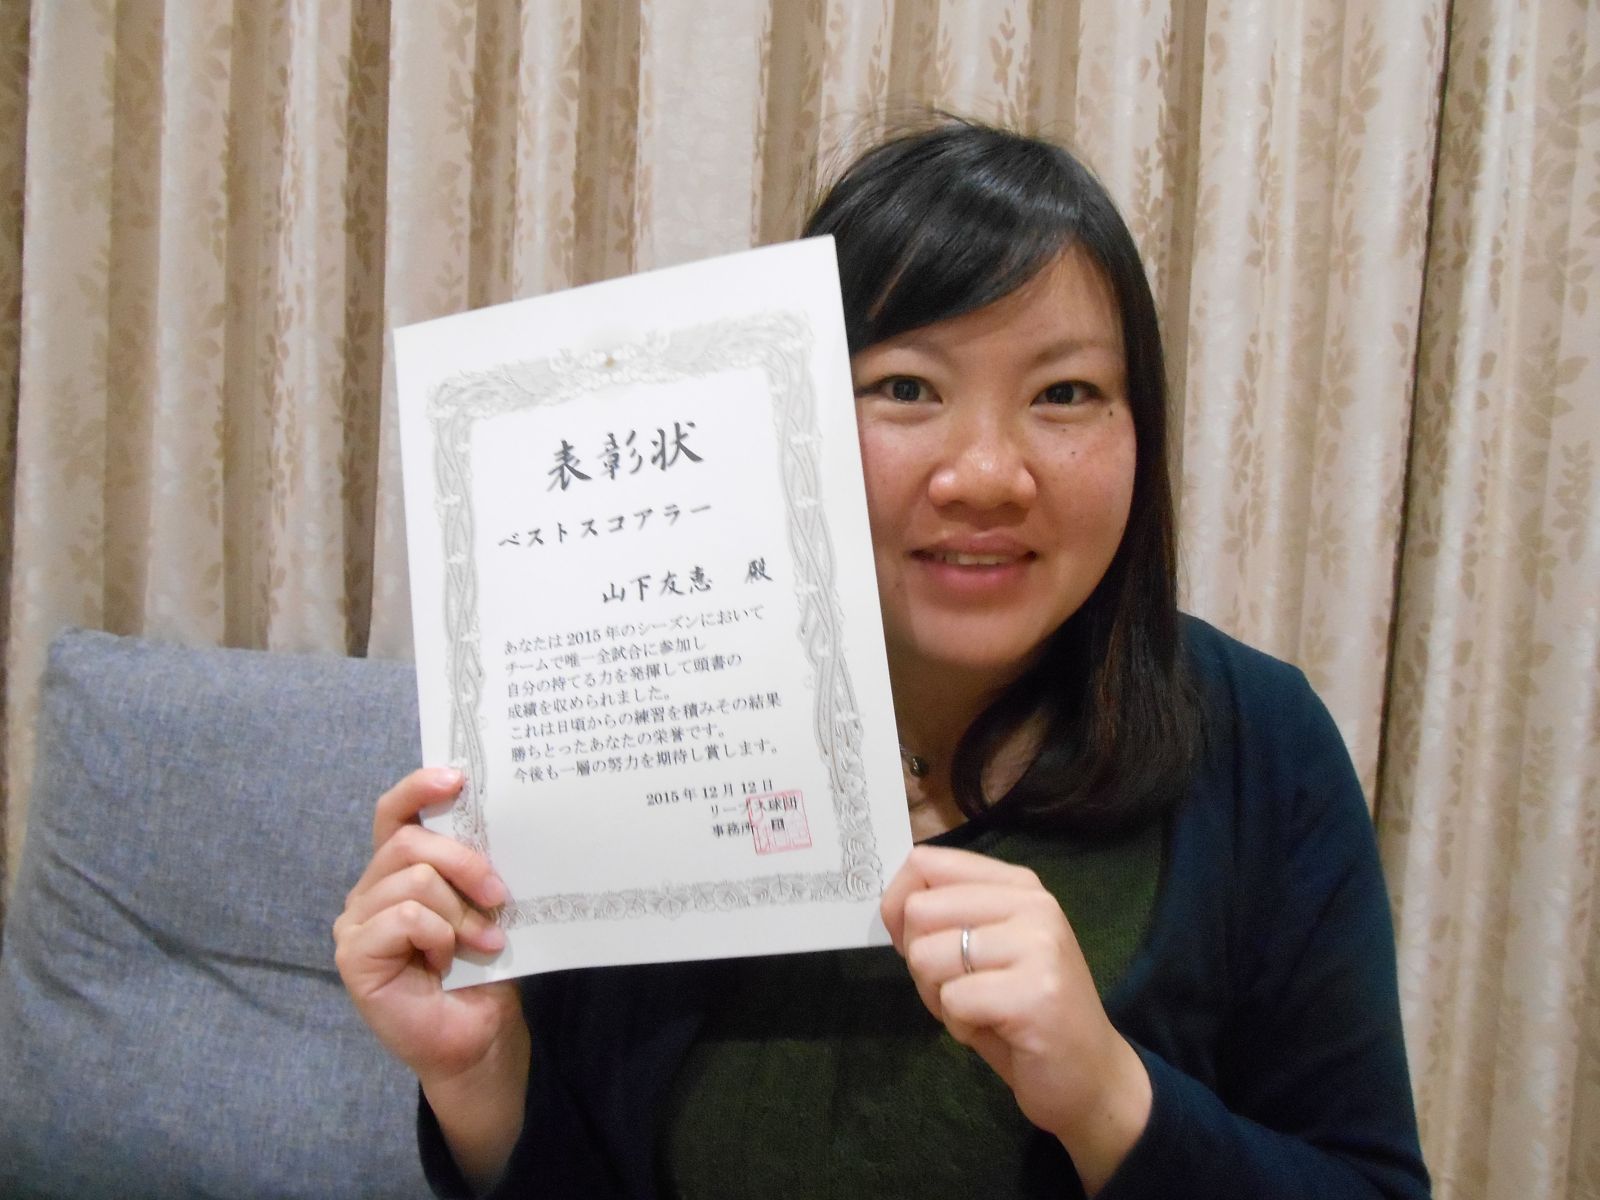 表彰状
ベストスコアラー
山下友恵 殿
あなたは2015年のシーズンにおいて
チームで唯一全試合に参加し
自分の持てる力を発揮して頭書の
成績を収められました。
これは日頃からの練習を積みその結果
勝ちとったあなたの栄誉です。
今後も一層の努力を期待し賞します。
2015年12月12日
球団
事務所